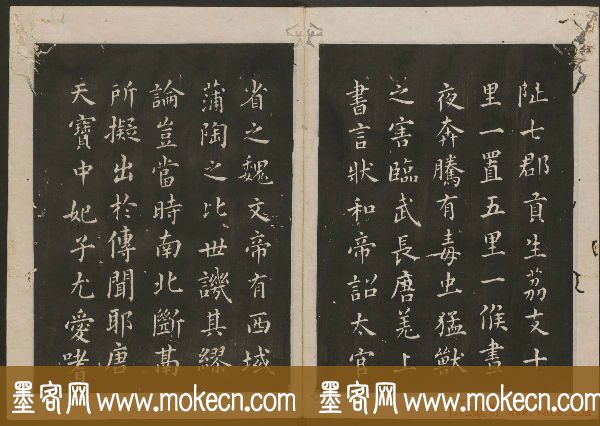 阯七郡貢生荔支十
里一置五里一候晝
夜奔騰有毒虫猛獸
之害臨武長唐羌上
書言狀和帝詔太官
省之魏文帝有西域
蒲陶之比世譏其繆
論豈當時南北斷萬
所擬出於傳聞耶唐
天寶中妃子尤愛嗜
墨客网 www.mokecn.com 墨客网 www.mokecn.com